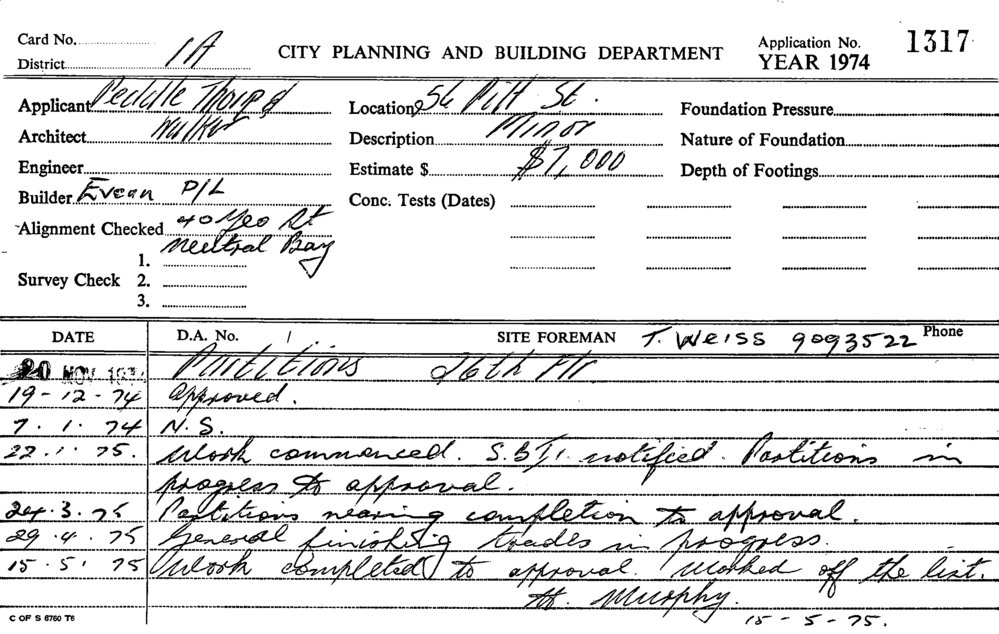 Card No.
District 1A
CITY PLANNING AND BUILDING DEPARTMENT
Application No. 1317
YEAR 1974
Applicant Peddle Thorp &
Architect Walker
Engineer
Builder Evean P/L
Alignment Checked 40 Yeo St
Neutral Bay
Survey Check 1.
2.
3.
Location 56 Pitt St.
Description Minor
Estimate $ $7,000
Conc. Tests (Dates)
Foundation Pressure
Nature of Foundation
Depth of Footings
DATE D.A. No. 1 SITE FOREMAN T. WEISS 9093522 Phone
20 NOV 197 Partitions 26th Flr
19-12-74 Approved.
7.1.74 N.S.
22.1.75. Work commenced. notified. Partitions in
progress to approval.
24.3.75 Partitions nearing completion to approval.
29.4.75 General finishing trades in progress.
15.5.75 Work completed to approval. Marked off the list.
Murphy.
15-5-75.
C OF S 6760 T6